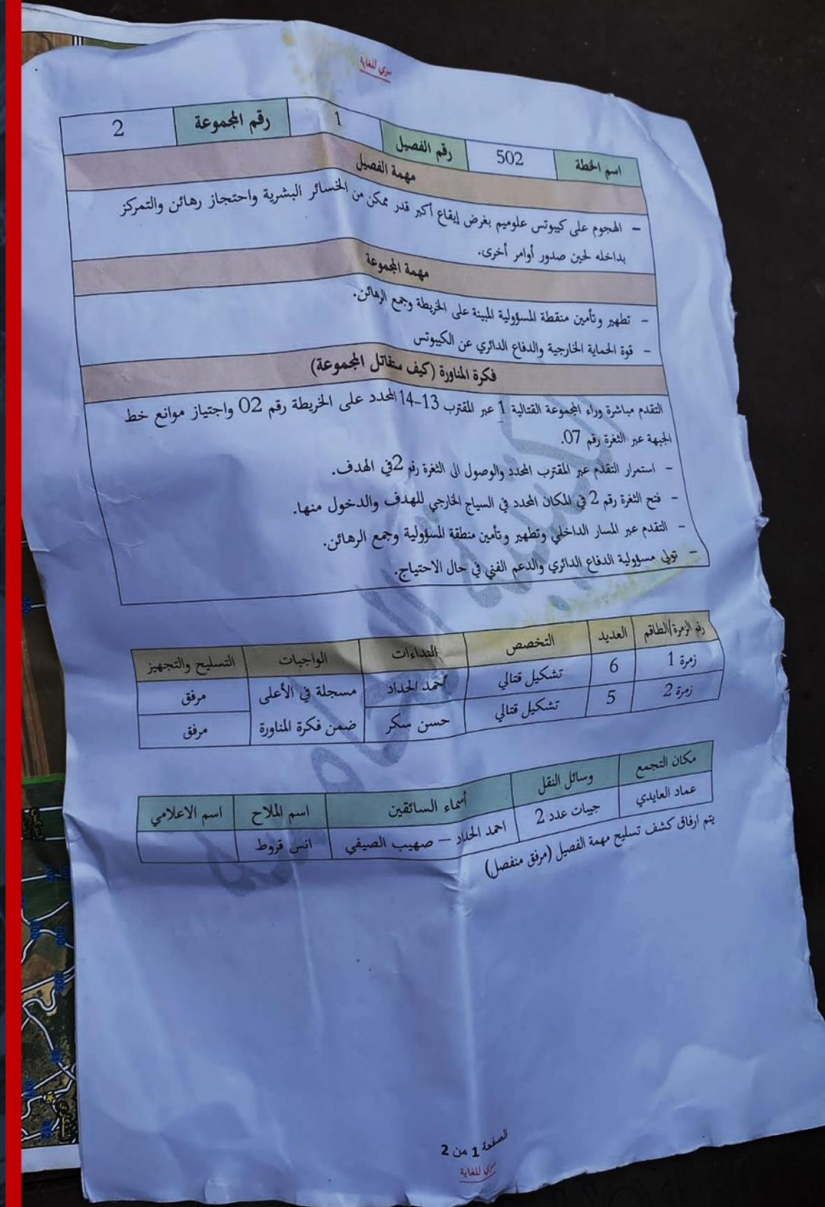 سري للغاية
اسم الخطة 502 رقم الفصيل 1 رقم المجموعة 2
مهمة الفصيل
– الهجوم على كيبوتس علوميم بغرض إيقاع أكبر قدر ممكن من الخسائر البشرية واحتجاز رهائن والتمركز
بداخله لحين صدور أوامر أخرى.
مهمة المجموعة
– تطهير وتأمين منقطة المسؤولية المبينة على الخريطة وجمع الرهائن.
– قوة الحماية الخارجية والدفاع الدائري عن الكيبوتس
فكرة المناورة (كيف ستقاتل المجموعة)
التقدم مباشرة وراء المجموعة القتالية 1 عبر المقترب 13-14 المحدد على الخريطة رقم 02 واجتياز موانع خط
الجبهة عبر الثغرة رقم 07.
– استمرار التقدم عبر المقترب المحدد والوصول الى الثغرة رقم 2في الهدف.
– فتح الثغرة رقم 2 في المكان المحدد في السياج الخارجي للهدف والدخول منها.
– التقدم عبر المسار الداخلي وتطهير وتأمين منطقة المسؤولية وجمع الرهائن.
– تولي مسؤولية الدفاع الدائري والدعم الفني في حال الاحتياج.
رقم الزمرة/الطاقم العديد التخصص النداءات الواجبات التسليح والتجهيز
زمرة 1 6 تشكيل قتالي احمد الحداد مسجلة في الأعلى مرفق
زمرة 2 5 تشكيل قتالي حسن سكر ضمن فكرة المناورة مرفق
مكان التجمع وسائل النقل أسماء السائقين اسم الملاح اسم الاعلامي
عماد العايدي جيبات عدد 2 احمد الحداد – صهيب الصيفي انس قروط
يتم ارفاق كشف تسليح مهمة الفصيل (مرفق منفصل)
الصفحة 1 من 2
سري للغاية